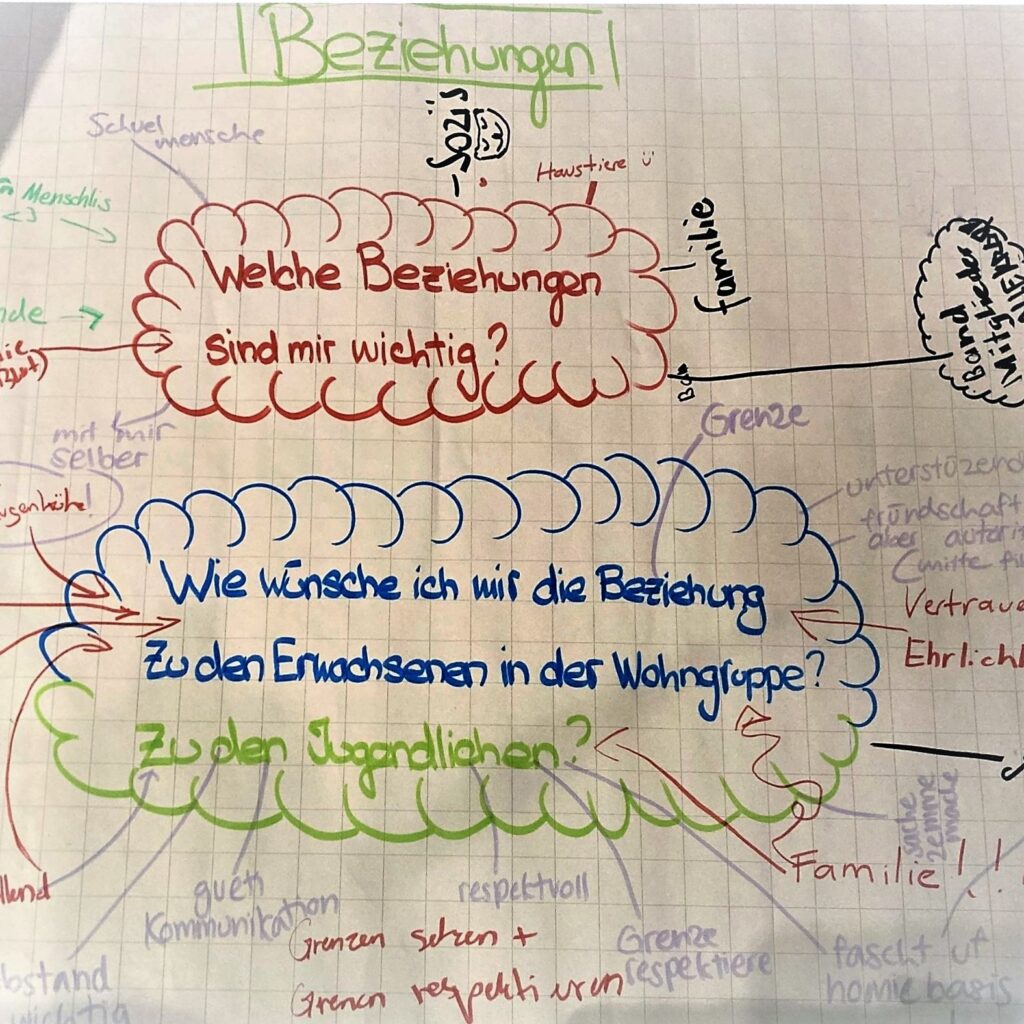 Beziehungen
Schuel
mensche
- Sozis
Haustiere ü
Menschlis
<3
Familie
Welche Beziehungen
sind mir wichtig?
Band
Mitglieder
mit mir
selber
Grenze
unterstüzend
fründschaft
aber
Wie wünsche ich mir die Beziehung
zu den Erwachsenen in der Wohngruppe?
Zu den Jugendlichen?
Vertraue
Ehrlich
sache
zemme
mache
Familie!!!
guéti
Kommunikation
respektvoll
Grenzen setzen +
Grenzen respektieren
Grenze
respektiere
fascht uf
homie basis
bstand
wichtig